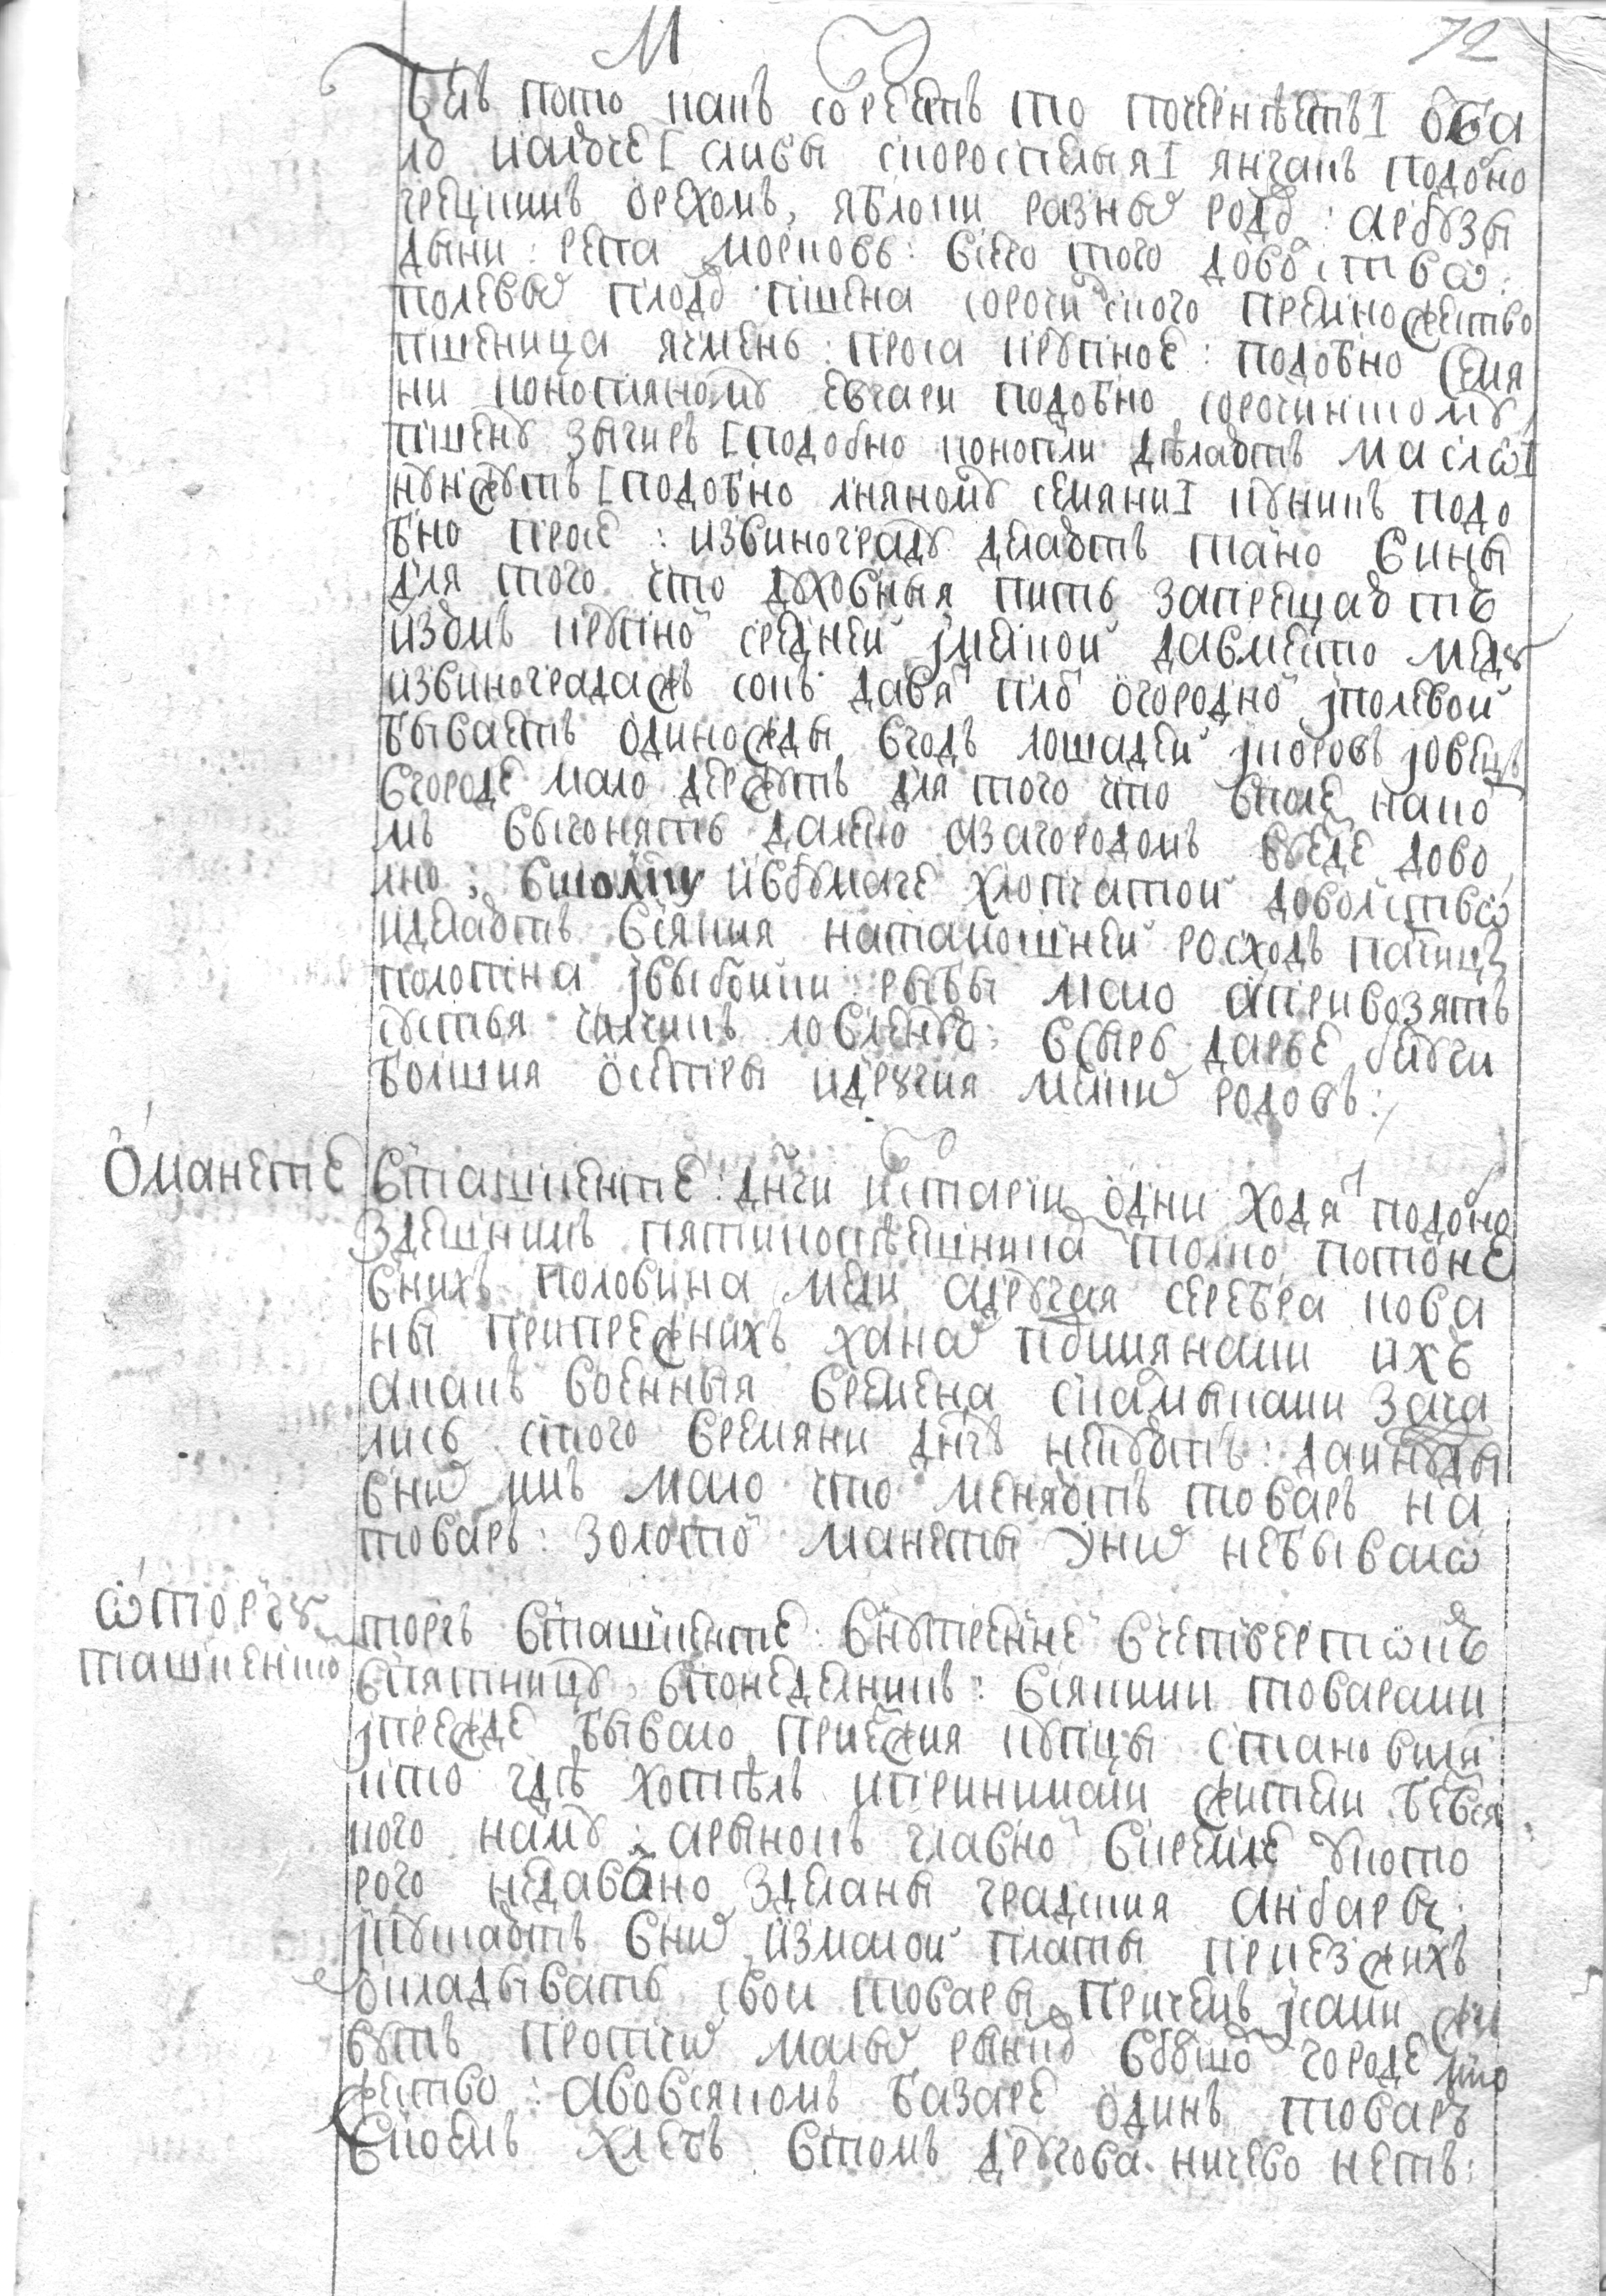 М 72
белъ пото какъ сореетъ то почернѣетъ] бба
лю налюче [сливы скороспелыя] янгакъ подобно
грецкимъ орехомъ, яблоки разныхъ родю: арбузы
дыни: репа морковь: всего того доволства:
полевыхъ плодю пшена сорочинского премножество
пшеница ячмень: проса крупное: подобно семя
ни конопляному евгари подобно сорочинкому
пшену зыгирь [подобно конопли дѣлаютъ масло]
нунжутъ [подобно лняному семяни] кунакъ подо
бно просе: извинограду делаютъ тайно вины
для того что духовныя пить запрещаютъ
изюмъ крупной средней jмелкой давместо меду
извинограда жъ сокъ давятъ плод огородной jполевой
бываетъ одиножды вгодъ лошадей jкоровъ jовецъ
вгороде мало держутъ для того что вполе накор
мъ выгонять далеко азагородомъ везде дово
лно: вшолку ивбумаге хлопчатой доволство
иделаютъ всякия натамошней росходъ пашцы
полотна jвыбойки: рыбы мало апривозятъ
сустья чилчикъ ловленую: всырь дарье белуги
болшия осетры идругия мелкихъ родовъ:
Оманете
вташкенте: днги истари одни ходятъ подобно
здешнимъ пятикопѣешникамъ толко потоне
внихъ половина меди адругая серебра кова
ны припрежнихъ ханахъ
акакъ военныя времена скалмыками зача
лись стого времяни днгъ некуютъ: даинужды
внихъ имъ мало что меняютъ товаръ на
товаръ: золотой манеты уних небывало
ѡторгу
ташкенско
торгъ вташкенте: внутренне вчетвертокъ
впятницу, впонеделникъ: всякими товарами
jпрежде бывало приежия купцы становили
кто гдѣ хотѣлъ ипринимали жители безвся
кого найму: арынокъ главной вкремле укото
рого недавано зделаны градския анбары;
jпущаютъ вних измалой платы приезжихъ
складывать свои товары, причемъ jсами жи
вутъ протчихъ малыхъ рынкю городе мно
жество: авовсякомъ базаре одинъ товаръ
вкоемъ хлебъ втомъ другова ничево нетъ: